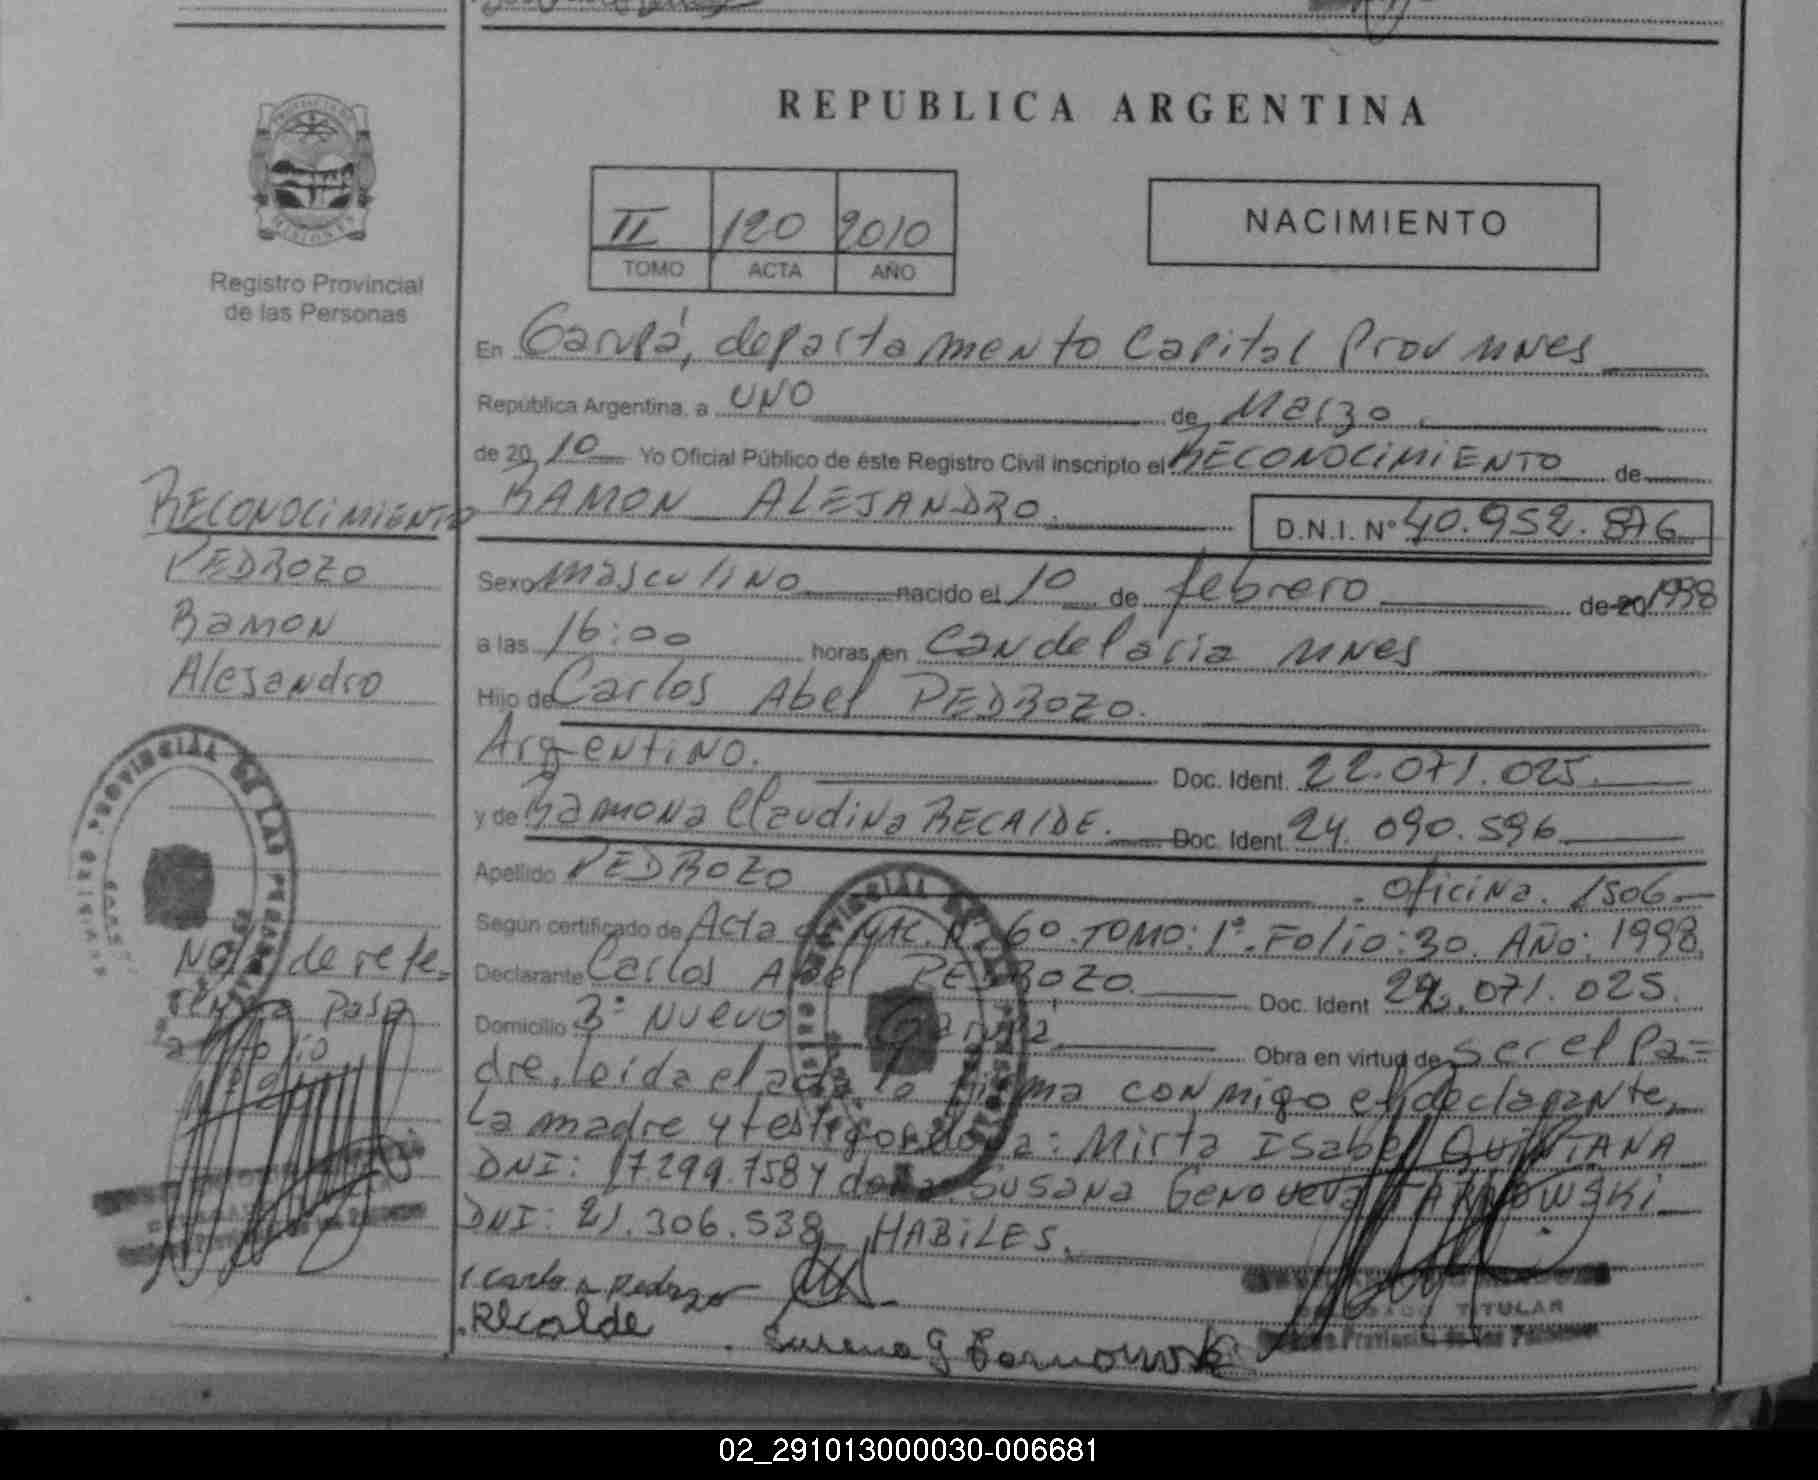 REPUBLICA ARGENTINA
PROVINCIA DE
MISIONES
Registro Provincial
de las Personas
II 120 2010
TOMO ACTA AÑO
NACIMIENTO
En Garupá, departamento Capital Prov Mnes
República Argentina, a UNO de Marzo
de 20 10 Yo Oficial Público de éste Registro Civil inscripto el RECONOCIMIENTO de
RAMON ALEJANDRO D.N.I. Nº 40.952.876
Sexo masculino nacido el 10 de febrero de 20 1998
a las 16:00 horas, en Candelaria Mnes
Hijo de Carlos Abel PEDROZO.
Argentino. Doc. Ident. 22.071.025.
y de Ramona Claudina RECALDE. Doc. Ident. 24.090.596
Apellido PEDROZO . Oficina. 1506.-
Según certificado de Acta de NAC. Nº 60. TOMO: 1º. Folio: 30. AÑO: 1998.
Declarante Carlos Abel PEDROZO Doc. Ident 22.071.025.
Domicilio Bº Nuevo Garupá Obra en virtud de ser el Pa=
dre, leída el acta, la firma conmigo el declarante,
La madre y testigos doña: Mirta Isabel QUINTANA
DNI: 17.299.758 y doña: Susana Genoveva TARNOWSKI
DNI: 21.306.538 HABILES.
Carlo A Pedrozo
Recalde
Susana G Tarnowski
TITULAR
Provincial de las Personas
RECONOCIMIENTO
PEDROZO
Ramon
Alejandro
Nota de refe-
rencia Pasa
a Folio
PROVINCIAL DE LAS PERSONAS
02_291013000030-006681